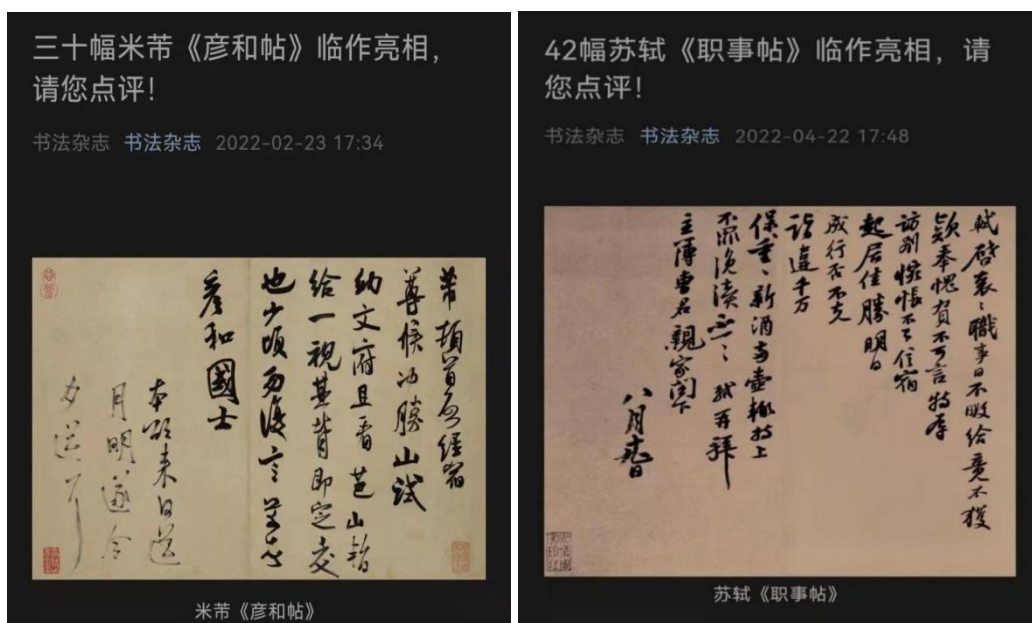 三十幅米芾《彦和帖》临作亮相，
请您点评!
书法杂志 书法杂志 2022-02-23 17:34
芾頓首再啓經宿
尊候冲勝山試
納文府且看芭山暫
給一視其背即定交
也少頃勿復言芾頓首
彦和國士
本欲來日送
月明遂今
夕送耳
米芾《彦和帖》
42幅苏轼《职事帖》临作亮相，请
您点评!
书法杂志 书法杂志 2022-04-22 17:48
軾啓衰ヽ職事日不暇給竟不獲
欵奉愧負不可言特辱
訪別惋悵不已信宿
起居佳勝明日
成行否不克
詣違千万
保重ヽ新酒兩壺輒持上
不罪浼瀆不一ヽ軾再拜
主簿曹君親家閣下
八月日
苏轼《职事帖》